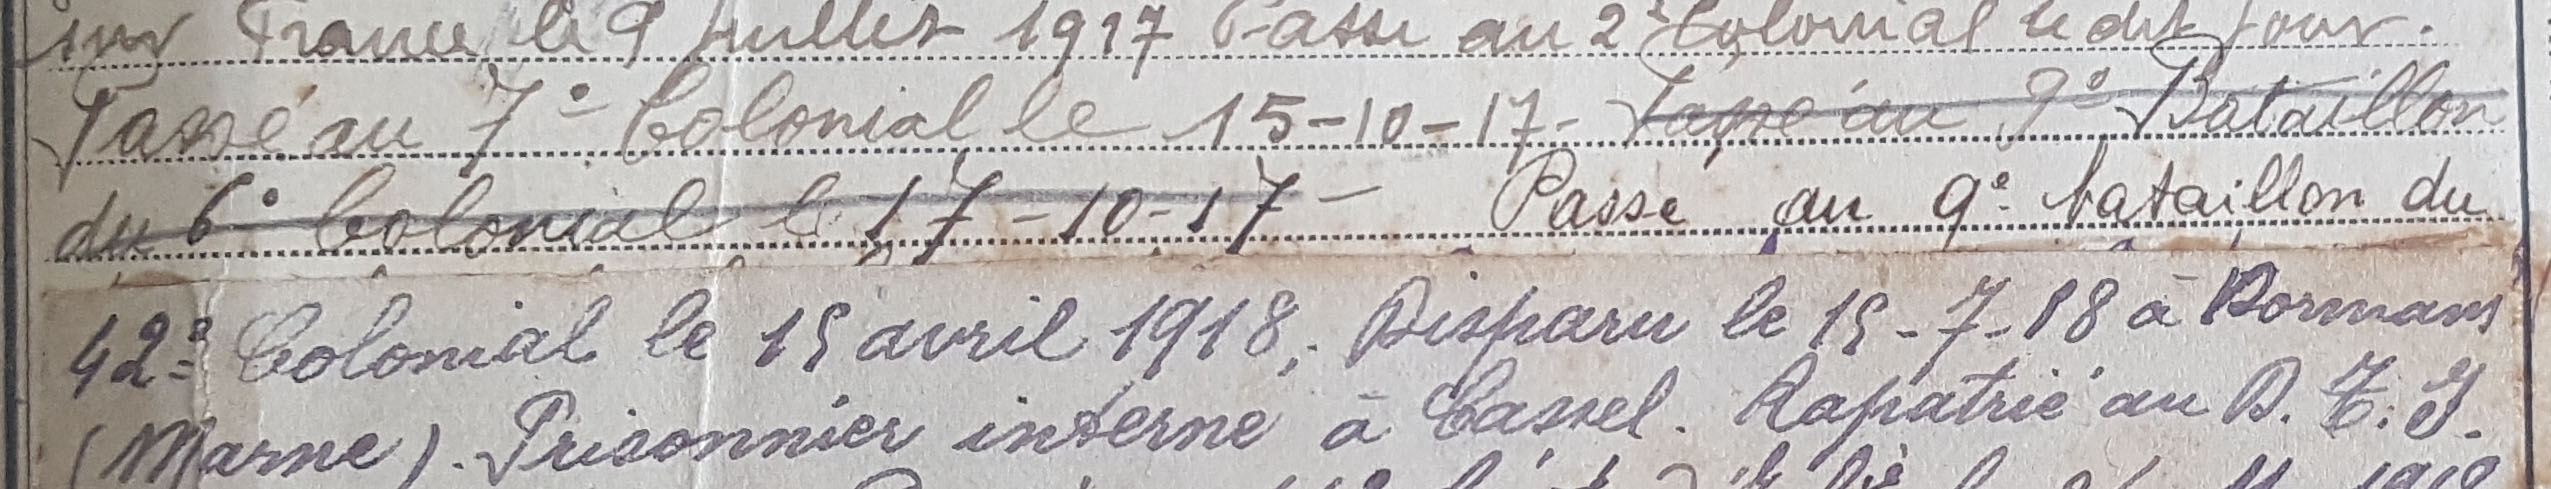 sur France le 9 Juillet 1917 Passé au 2e Colonial le dit jour.
Passé au 7e Colonial le 15-10-17- Passé au 9e Bataillon
du 6e Colonial le 17-10-17- Passé au 9e bataillon du
42e Colonial le 15 avril 1918; Disparu le 15-7-18 à Dormans
(Marne). Prisonnier interné à Cassel. Rapatrié au D.T.I.